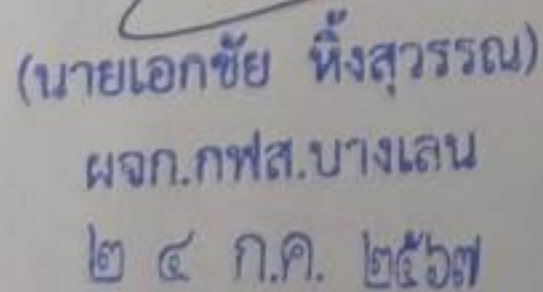 (นายเอกชัย หิ้งสุวรรณ)
ผจก.กฟส.บางเลน
๒ ๔ ก.ค. ๒๕๖๗